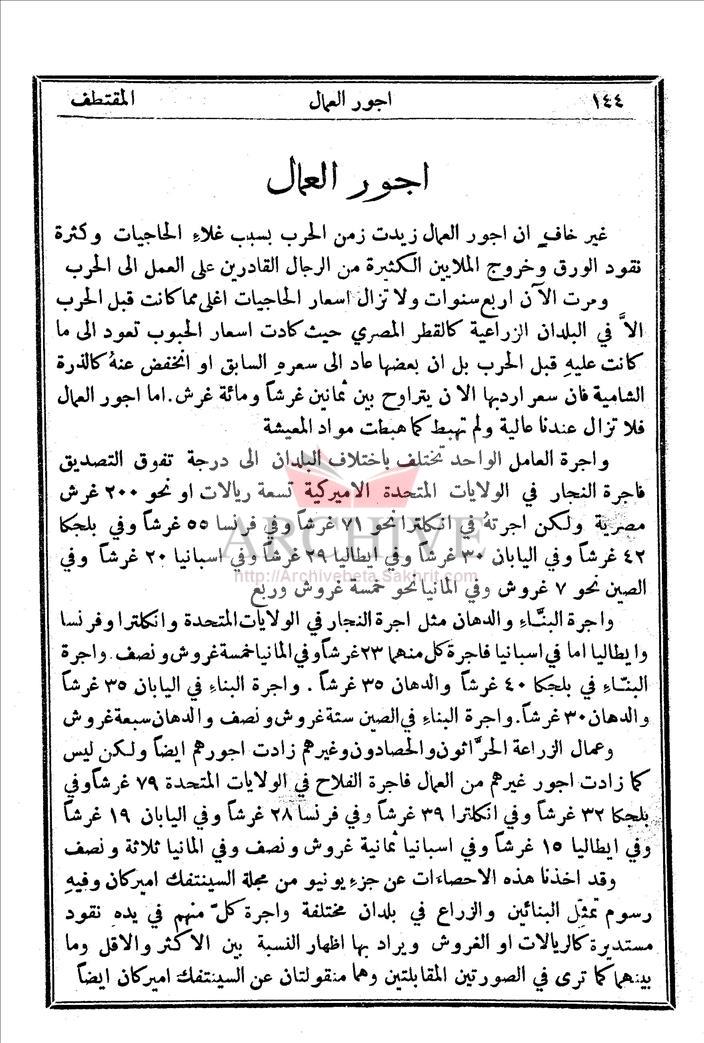 ١٤٤ اجور العمال المقتطف
اجور العمال
غير خافٍ ان اجور العمال زيدت زمن الحرب بسبب غلاءِ الحاجيات وكثرة
نقود الورق وخروج الملايين الكثيرة من الرجال القادرين على العمل الى الحرب
ومرت الآن اربع سنوات ولا تزال اسعار الحاجيات اغلى مما كانت قبل الحرب
الاَّ في البلدان الزراعية كالقطر المصري حيث كادت اسعار الحبوب تعود الى ما
كانت عليهِ قبل الحرب بل ان بعضها عاد الى سعرهِ السابق او انخفض عنهُ كالذرة
الشامية فان سعر اردبها الان يتراوح بين ثمانين غرشاً ومائة غرش. اما اجور العمال
فلا تزال عندنا عالية ولم تهبط كما هبطت مواد المعيشة
واجرة العامل الواحد تختلف باختلاف البلدان الى درجة تفوق التصديق
فاجرة النجار في الولايات المتحدة الاميركية تسعة ريالات او نحو ٢٠٠ غرش
مصرية ولكن اجرتهُ في انكلترا نحو ٧١ غرشاً وفي فرنسا ٥٥ غرشاً وفي بلجكا
٤٢ غرشاً وفي اليابان ٣٠ غرشاً وفي ايطاليا ٢٩ غرشاً وفي اسبانيا ٢٠ غرشاً وفي
الصين نحو ٧ غروش وفي المانيا نحو خمسة غروش وربع
واجرة البنَّاءِ والدهان مثل اجرة النجار في الولايات المتحدة وانكلترا وفرنسا
وايطاليا اما في اسبانيا فاجرة كل منهما ٢٣ غرشاً وفي المانيا خمسة غروش ونصف. واجرة
البنَّاءِ في بلجكا ٤٠ غرشاً والدهان ٣٥ غرشاً . واجرة البناء في اليابان ٣٥ غرشاً
والدهان ٣٠ غرشاً. واجرة البناء في الصين ستة غروش ونصف والدهان سبعة غروش
وعمال الزراعة الحرَّاثون والحصادون وغيرهم زادت اجورهم ايضاً ولكن ليس
كما زادت اجور غيرهم من العمال فاجرة الفلاح في الولايات المتحدة ٧٩ غرشاً وفي
بلجكا ٣٢ غرشاً وفي انكلترا ٣٩ غرشاً وفي فرنسا ٢٨ غرشاً وفي اليابان ١٩ غرشاً
وفي ايطاليا ١٥ غرشاً وفي اسبانيا ثمانية غروش ونصف وفي المانيا ثلاثة ونصف
وقد اخذنا هذه الاحصاءَات عن جزءِ يونيو من مجلة السينتفك اميركان وفيهِ
رسوم تمثّل البنائين والزراع في بلدان مختلفة واجرة كلّ منهم في يده نقود
مستديرة كالريالات او الغروش ويراد بها اظهار النسبة بين الاكثر والاقل وما
بينهما كما ترى في الصورتين المقابلتين وهما منقولتان عن السينتفك اميركان ايضاً
ARCHIVE
http://Archivebeta.Sakhrit.com